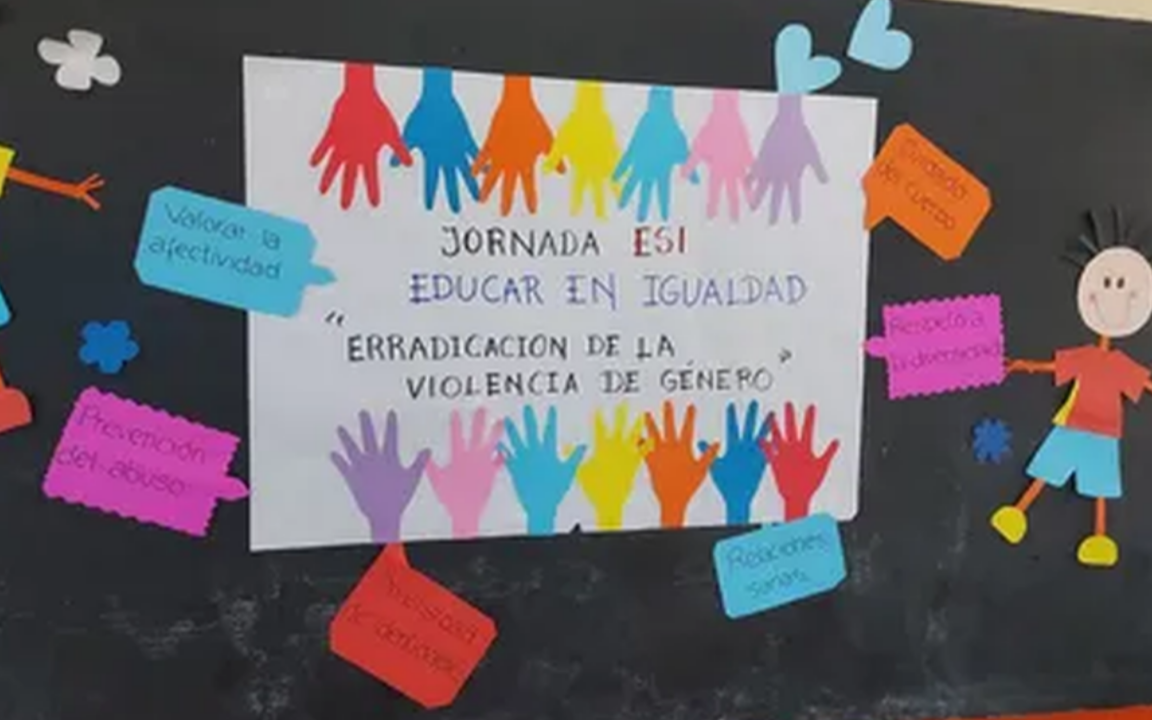 Valorar la
afectividad
Prevención
del abuso
JORNADA ESI
EDUCAR EN IGUALDAD
"ERRADICACION DE LA
VIOLENCIA DE GÉNERO"
Cuidado
del cuerpo
Respeto a
la diversidad
Relaciones
sanas
de